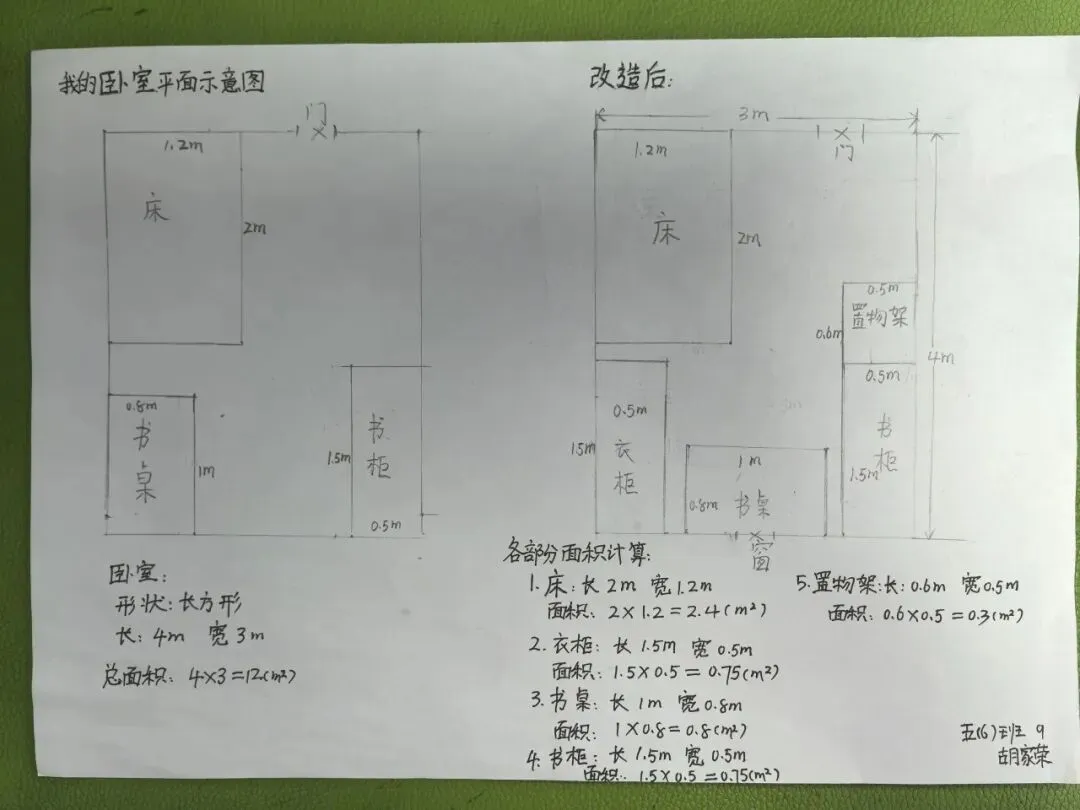 我的卧室平面示意图
门
1.2m
床
2m
0.8m
书桌
1m
书柜
1.5m
0.5m
卧室:
形状:长方形
长: 4m 宽3m
总面积: 4×3=12(m²)
改造后:
3m
门
1.2m
床
2m
0.5m
置物架
0.6m
4m
0.5m
书柜
1.5m
0.5m
衣柜
15m
1m
书桌
0.8m
窗
各部分面积计算:
1. 床:长 2m 宽1.2m
面积: 2×1.2=2.4(m²)
2. 衣柜: 长 1.5m 宽0.5m
面积: 1.5×0.5=0.75(m²)
3. 书桌: 长 1m 宽0.8m
面积: 1×0.8=0.8(m²)
4. 书柜: 长 1.5m 宽0.5m
面积: 1.5×0.5=0.75(m²)
5. 置物架:长: 0.6m 宽0.5m
面积: 0.6×0.5=0.3(m²)
五(6)班 9
胡家荣